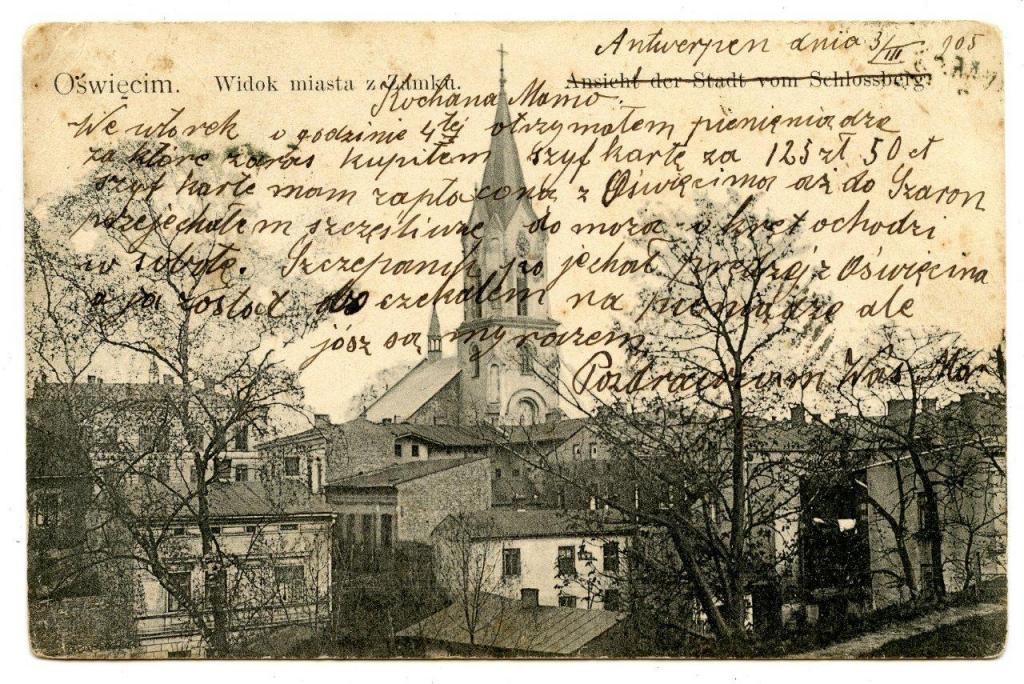 Antwerpen dnia 3/III 905
Oświęcim. Widok miasta z Zamku. Ansicht der Stadt vom Schlossberg.
Kochana Mamo.
We wtorek o godzinie 4tej otrzymałem pienięniądze
za które zaras kupiłem szyf kartę za 123 zł 50 ct
szyf kartę mam zapłaconą z Oświęcima aż do Szaron
przejechałem szczęśliwie do moża okręt ochodzi
w sobytę. Szczepanik pojechał prędzej z Oświęcina
a ja został doczekałem na pieniądze ale
jósz są my razem
Pozdrawiam Was